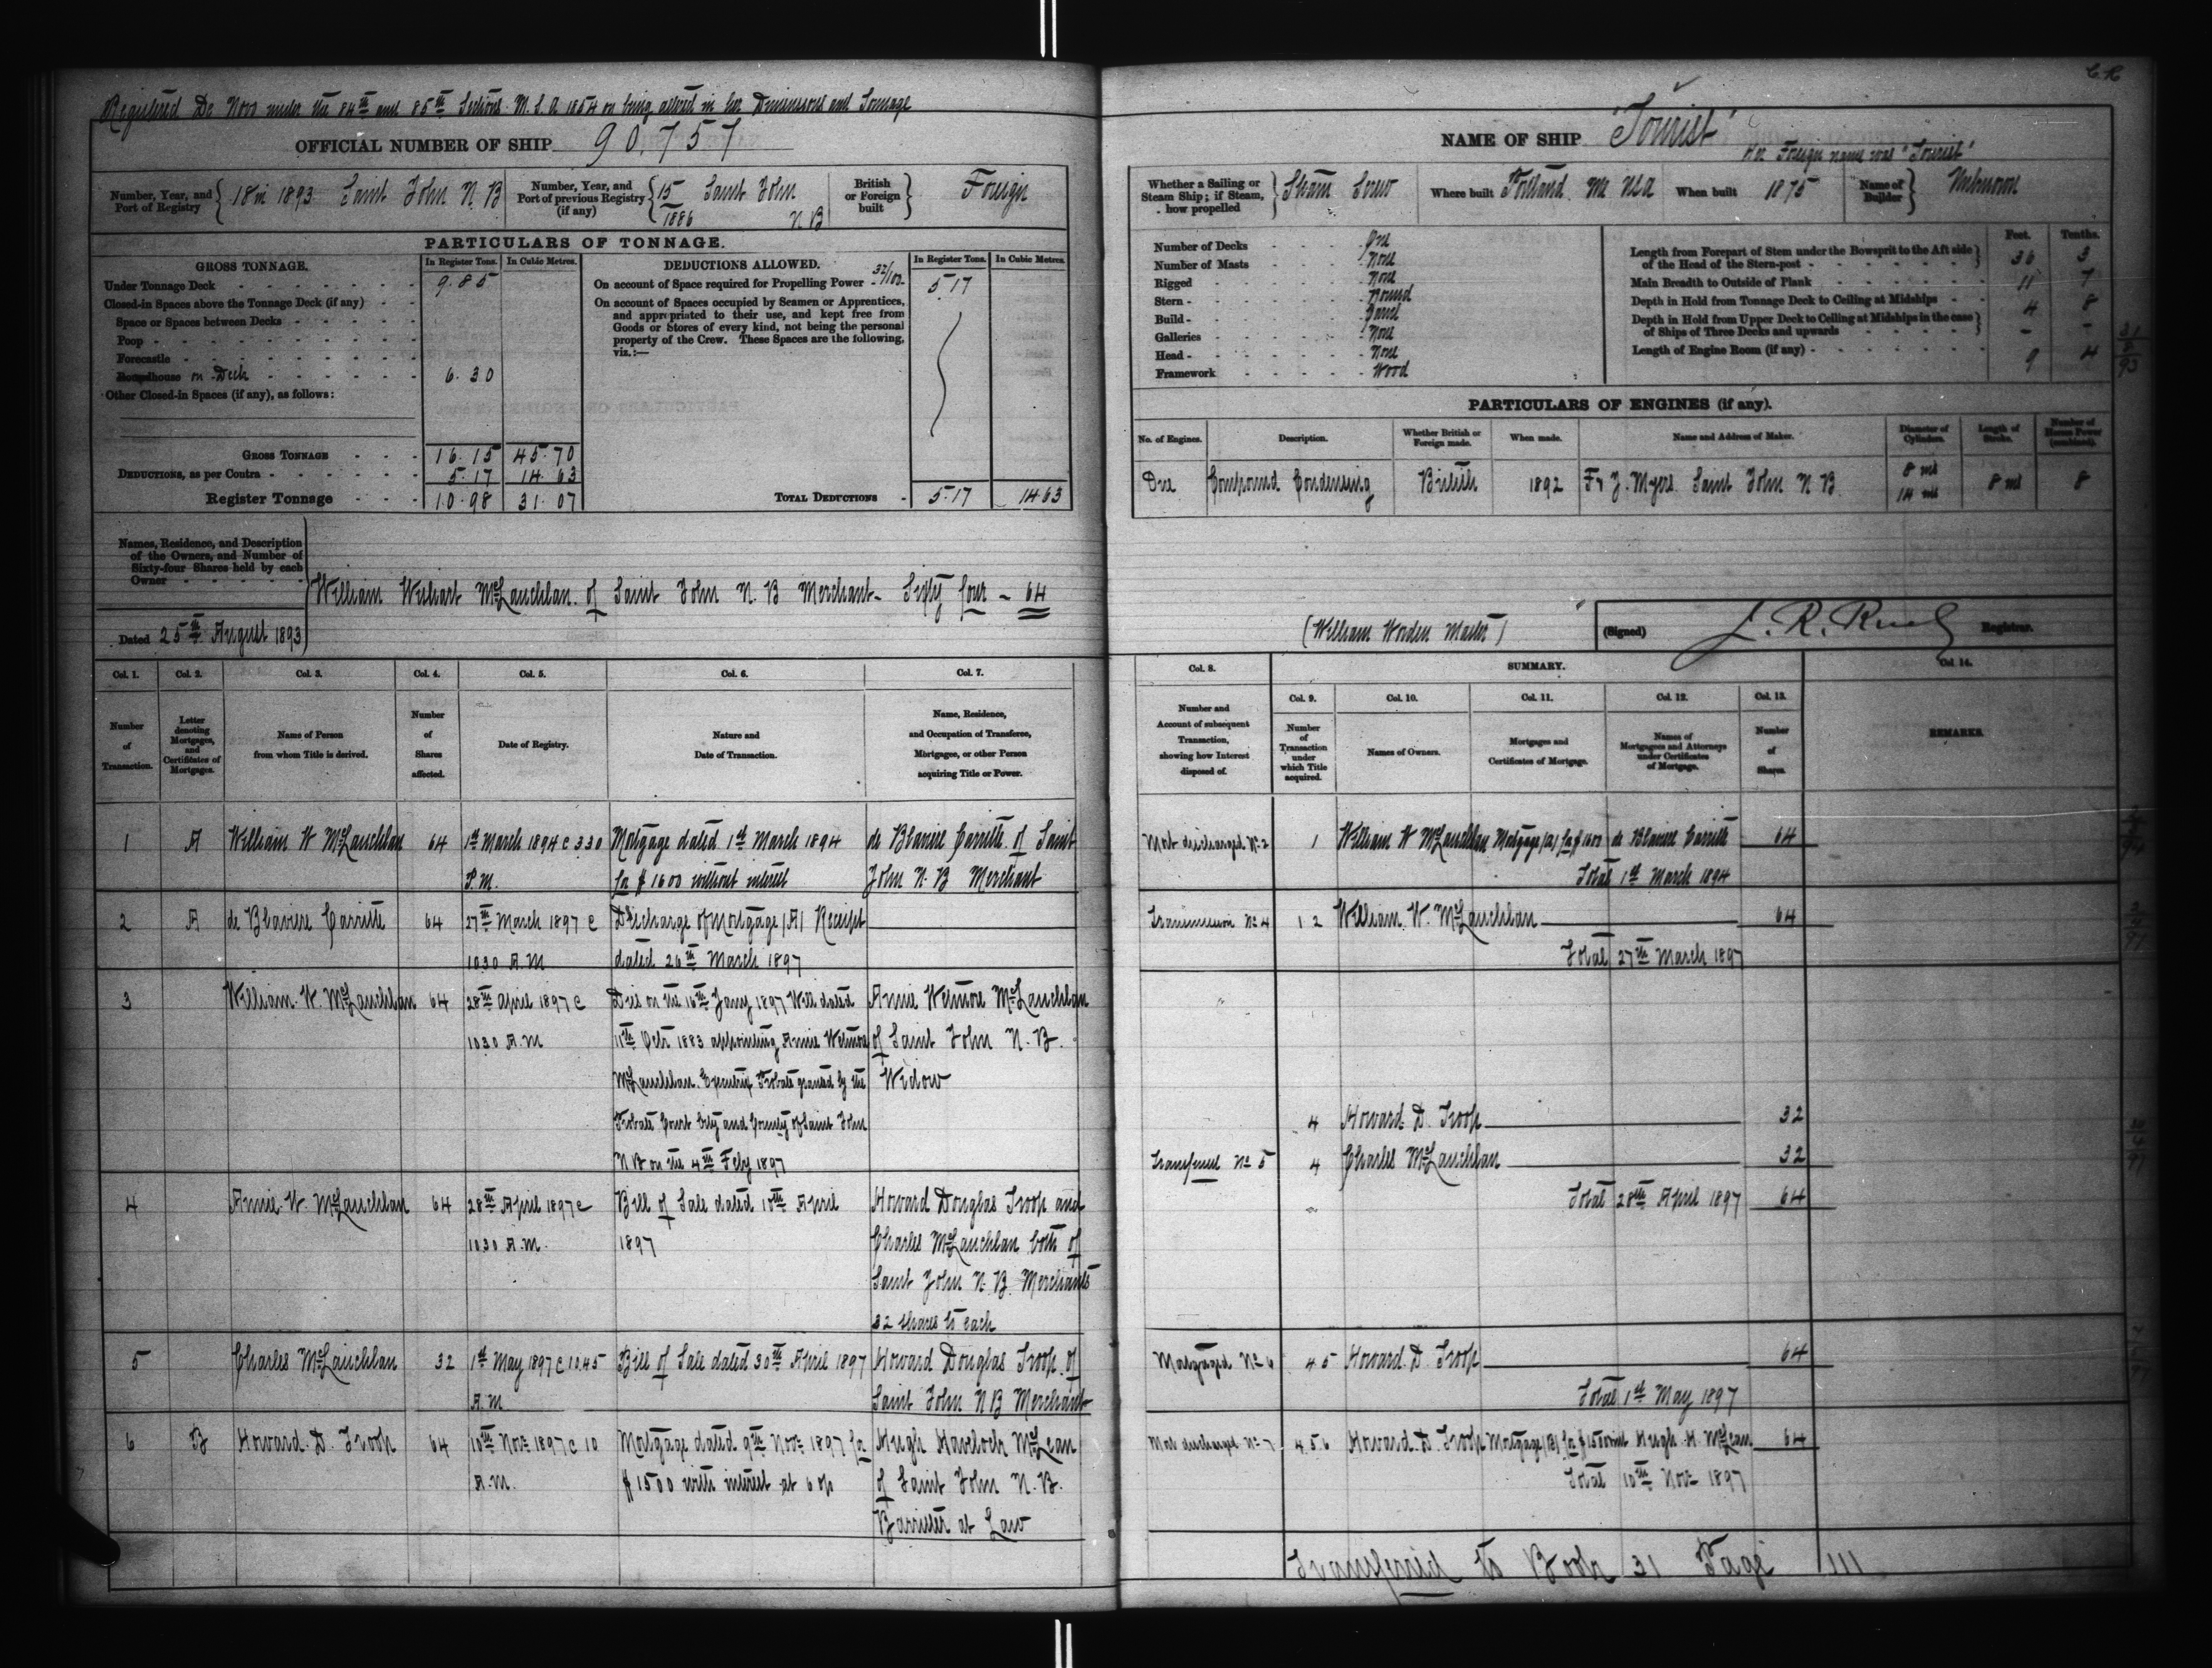 Registered De Novo under the 84th and 85th Sections M. S. A 1854 on being altered in her Dimensions and Tonnage
OFFICIAL NUMBER OF SHIP 90,757
Number, Year, and Port of Registry 18 in 1893 Saint John N. B
Number, Year, and Port of previous Registry (if any) 15/1886 Saint John N B
British or Foreign built Foreign
PARTICULARS OF TONNAGE.
GROSS TONNAGE. In Register Tons. In Cubic Metres.
Under Tonnage Deck 9.85
Closed-in Spaces above the Tonnage Deck (if any)
Space or Spaces between Decks
Poop
Forecastle
Roundhouse on Deck 6.30
Other Closed-in Spaces (if any), as follows:
GROSS TONNAGE 16.15 45.70
DEDUCTIONS, as per Contra 5.17 14.63
Register Tonnage 10.98 31.07
DEDUCTIONS ALLOWED. In Register Tons. In Cubic Metres.
On account of Space required for Propelling Power 32/100 5.17
On account of Spaces occupied by Seamen or Apprentices,
and appropriated to their use, and kept free from
Goods or Stores of every kind, not being the personal
property of the Crew. These Spaces are the following,
viz.:—
TOTAL DEDUCTIONS 5.17 14.63
Names, Residence, and Description
of the Owners, and Number of
Sixty-four Shares held by each
Owner
William Wishart McLauchlan of Saint John N. B Merchant - Sixty four - 64
Dated 25th August 1893
Col. 1. Col. 2. Col. 3. Col. 4. Col. 5. Col. 6. Col. 7.
Number of Transaction.
Letter denoting Mortgages, and Certificates of Mortgages.
Name of Person from whom Title is derived.
Number of Shares affected.
Date of Registry.
Nature and Date of Transaction.
Name, Residence, and Occupation of Transferee, Mortgagee, or other Person acquiring Title or Power.
1 A William W McLauchlan 64 1st March 1894 @ 3.30 Mortgage dated 1st March 1894 de Blaviere Carritte of Saint
P.M. for $ 1600 without interest John N. B Merchant
2 A de Blaviere Carritte 64 27th March 1897 @ Discharge of Mortgage (A) Receipt
10.30 A.M dated 26th March 1897
3 William W. McLauchlan 64 28th April 1897 @ Died on the 16th Jany 1897 Will dated Annie Wetmore McLauchlan
10.30 A.M 11th Octr 1883 appointing Annie Wetmore of Saint John N. B.
McLauchlan Executrix Probate granted by the Widow
Probate Court City and County of Saint John
N B on the 4th Feby 1897
4 Annie W. McLauchlan 64 28th April 1897 @ Bill of Sale dated 10th April Howard Douglas Troop and
10.30 A.M. 1897 Charles McLauchlan both of
Saint John N. B. Merchants
32 shares to each
5 Charles McLauchlan 32 1st May 1897 @ 10.45 Bill of Sale dated 30th April 1897 Howard Douglas Troop of
A.M Saint John N B Merchant
6 B Howard D. Troop 64 10th Novr 1897 @ 10 Mortgage dated 9th Novr 1897 for Hugh Havelock McLean
A.M. $ 1500 with interest at 6 o/o of Saint John N. B.
Barrister at Law
NAME OF SHIP "Tourist"
Her Foreign name was "Tourist"
Whether a Sailing or Steam Ship; if Steam, how propelled Steam Screw
Where built Portland Me USA When built 1875 Name of Builder Unknown
Number of Decks One
Number of Masts None
Rigged None
Stern Round
Build Carvel
Galleries None
Head None
Framework Wood
Feet. Tenths.
Length from Forepart of Stem under the Bowsprit to the Aft side of the Head of the Stern-post 36 3
Main Breadth to Outside of Plank 11 7
Depth in Hold from Tonnage Deck to Ceiling at Midships 4 8
Depth in Hold from Upper Deck to Ceiling at Midships in the case of Ships of Three Decks and upwards - -
Length of Engine Room (if any) 9 4
PARTICULARS OF ENGINES (if any).
No. of Engines. Description. Whether British or Foreign made. When made. Name and Address of Maker. Diameter of Cylinders. Length of Stroke. Number of Horse Power (combined).
One Compound Condensing British 1892 Myers Saint John N. B 8 ins 14 ins 8 ins 8
(William Worden Master)
(Signed) J. R. Ruel Registrar.
Col. 8. SUMMARY. Col. 14.
Col. 9. Col. 10. Col. 11. Col. 12. Col. 13.
Number and Account of subsequent Transaction, showing how Interest disposed of.
Number of Transaction under which Title acquired.
Names of Owners.
Mortgages and Certificates of Mortgage.
Names of Mortgagees and Attorneys under Certificates of Mortgage.
Number of Shares.
REMARKS.
Mort discharged No 2 1 William W McLauchlan Mortgage (A) for $ 1600 de Blaviere Carritte 64
Total 1st March 1894
Transmission No 4 1 2 William W. McLauchlan 64
Total 27th March 1897
4 Howard D. Troop 32
Transferred No 5 4 Charles McLauchlan 32
Total 28th April 1897 64
Mortgaged No 6 4 5 Howard D. Troop 64
Total 1st May 1897
Mort discharged No 7 4.5.6 Howard D. Troop Mortgage (B) for $1500 Hugh H. McLean 64
Total 10th Novr 1897
Transferred to Book 31 Page 111